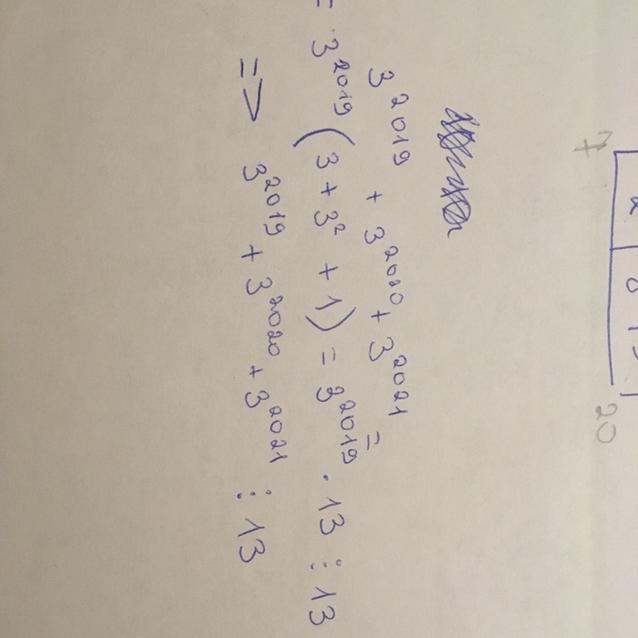 3²⁰¹⁹ + 3²⁰²⁰ + 3²⁰²¹ =
= 3²⁰¹⁹ (3 + 3² + 1) = 3²⁰¹⁹ · 13 ⋮ 13
=> 3²⁰¹⁹ + 3²⁰²⁰ + 3²⁰²¹ ⋮ 13
7
20